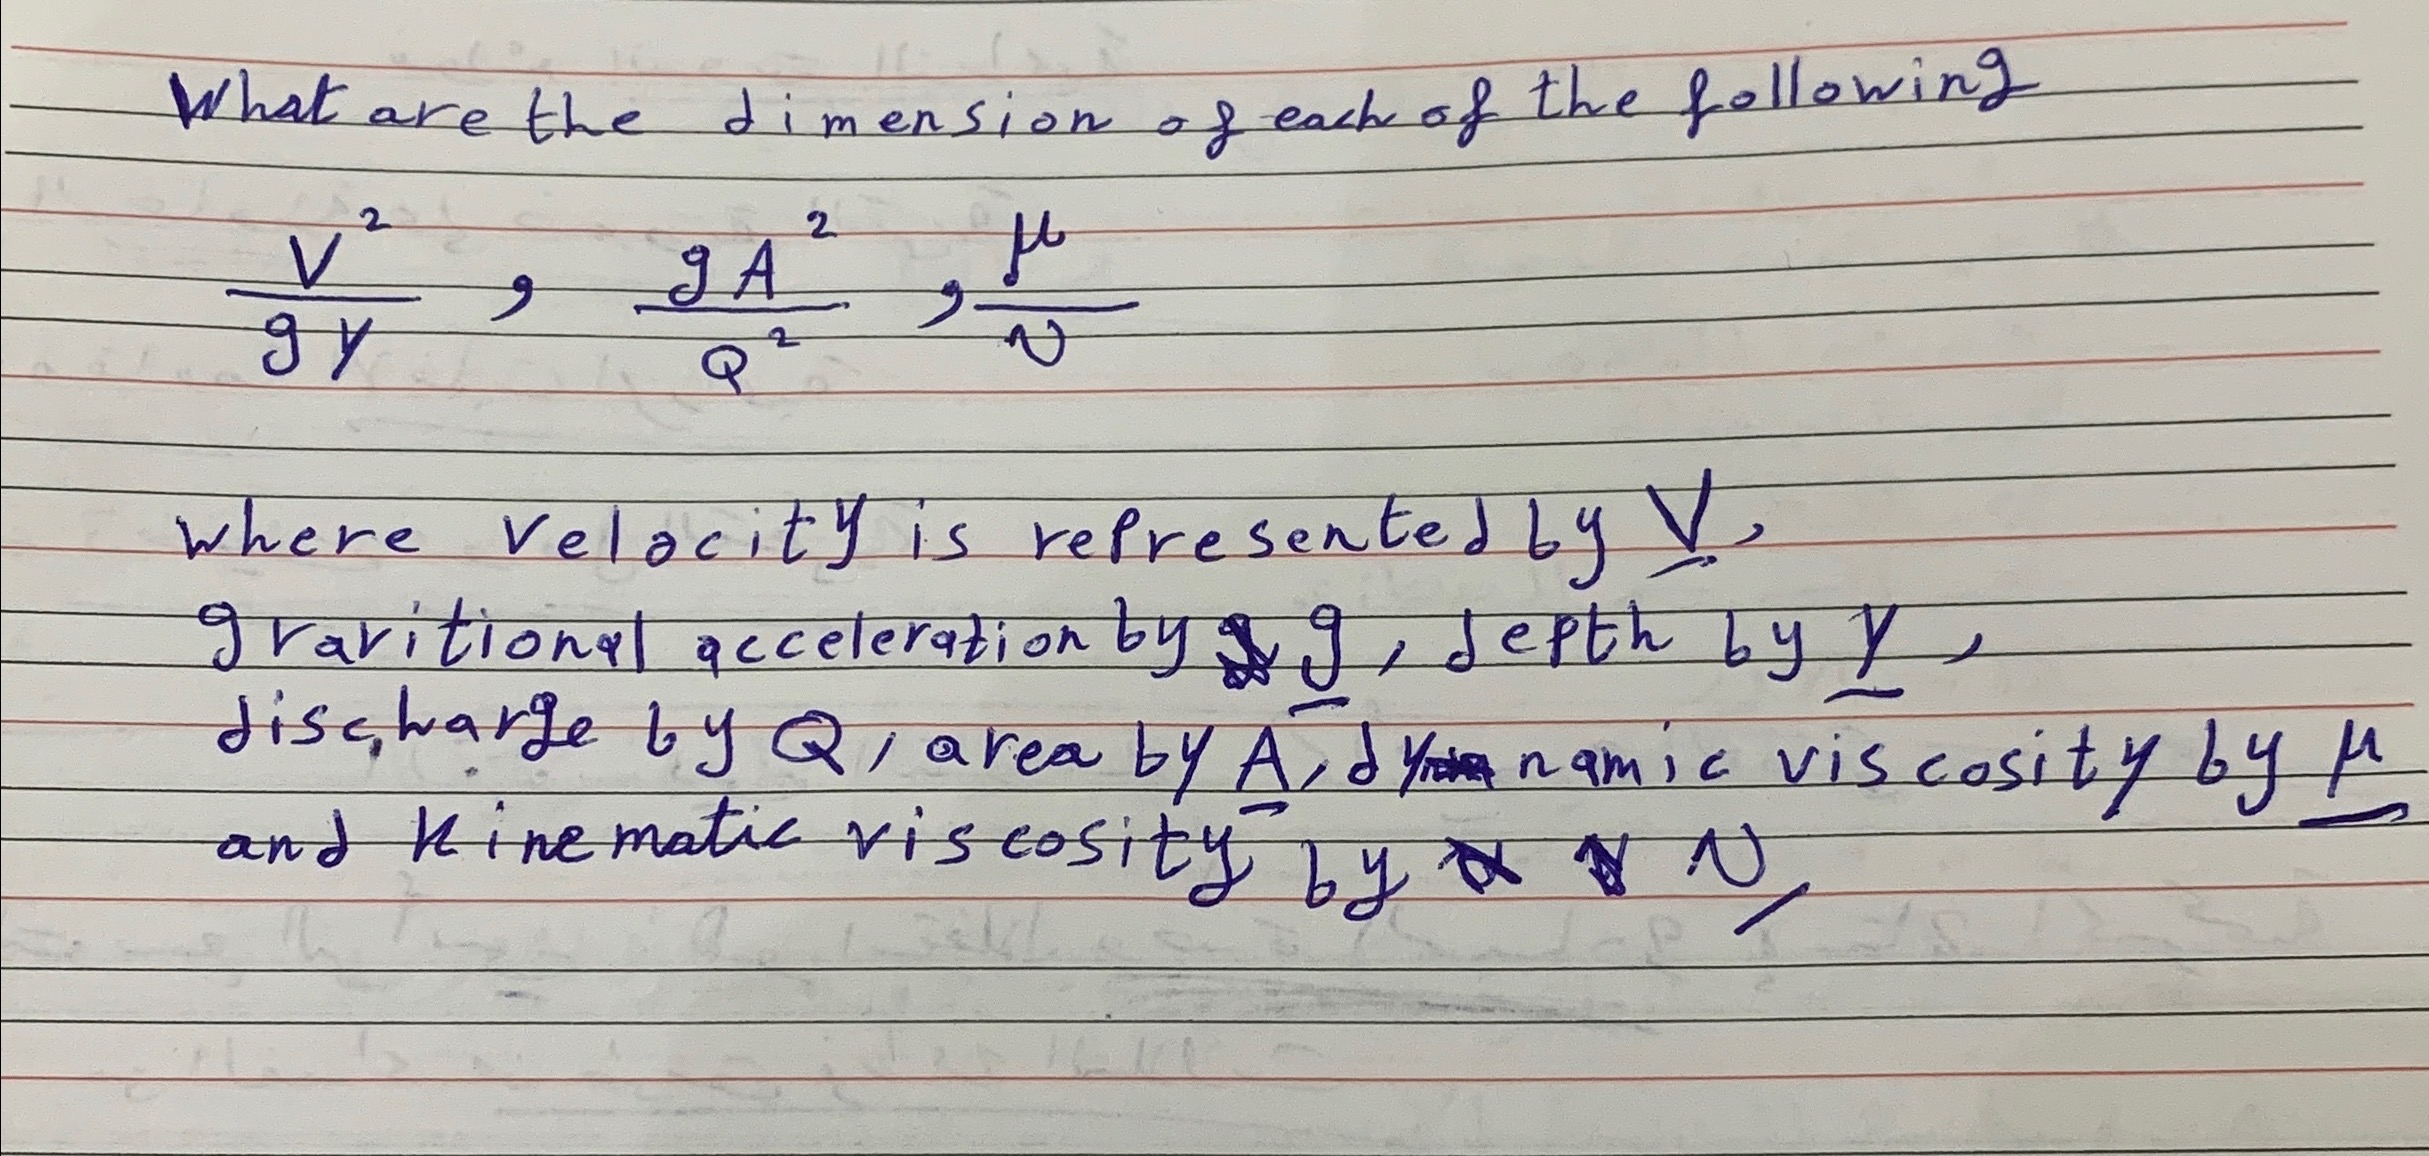 What are the dimension of each of the following
V² / gy , gA² / Q² , μ / ν
where velocity is represented by V,
gravitional acceleration by g, depth by y,
discharge by Q, area by A, dynamic viscosity by μ
and kinematic viscosity by ν